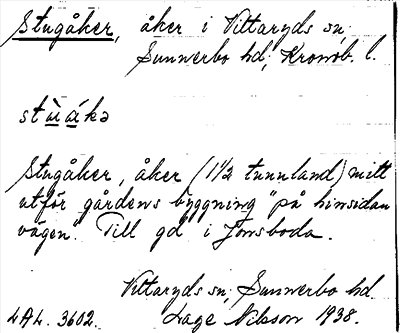 Stugåker, åker i Vittaryds sn,
Sunnerbo hd, Kronob. l.
stùákə
Stugåker, åker (1 1/2 tunnland) mitt
utför gårdens byggning "på hinsidan
vägen". Till gd i Jonsboda.
Vittaryds sn, Sunnerbo hd.
LAL. 3602. Lage Nilsson 1938.